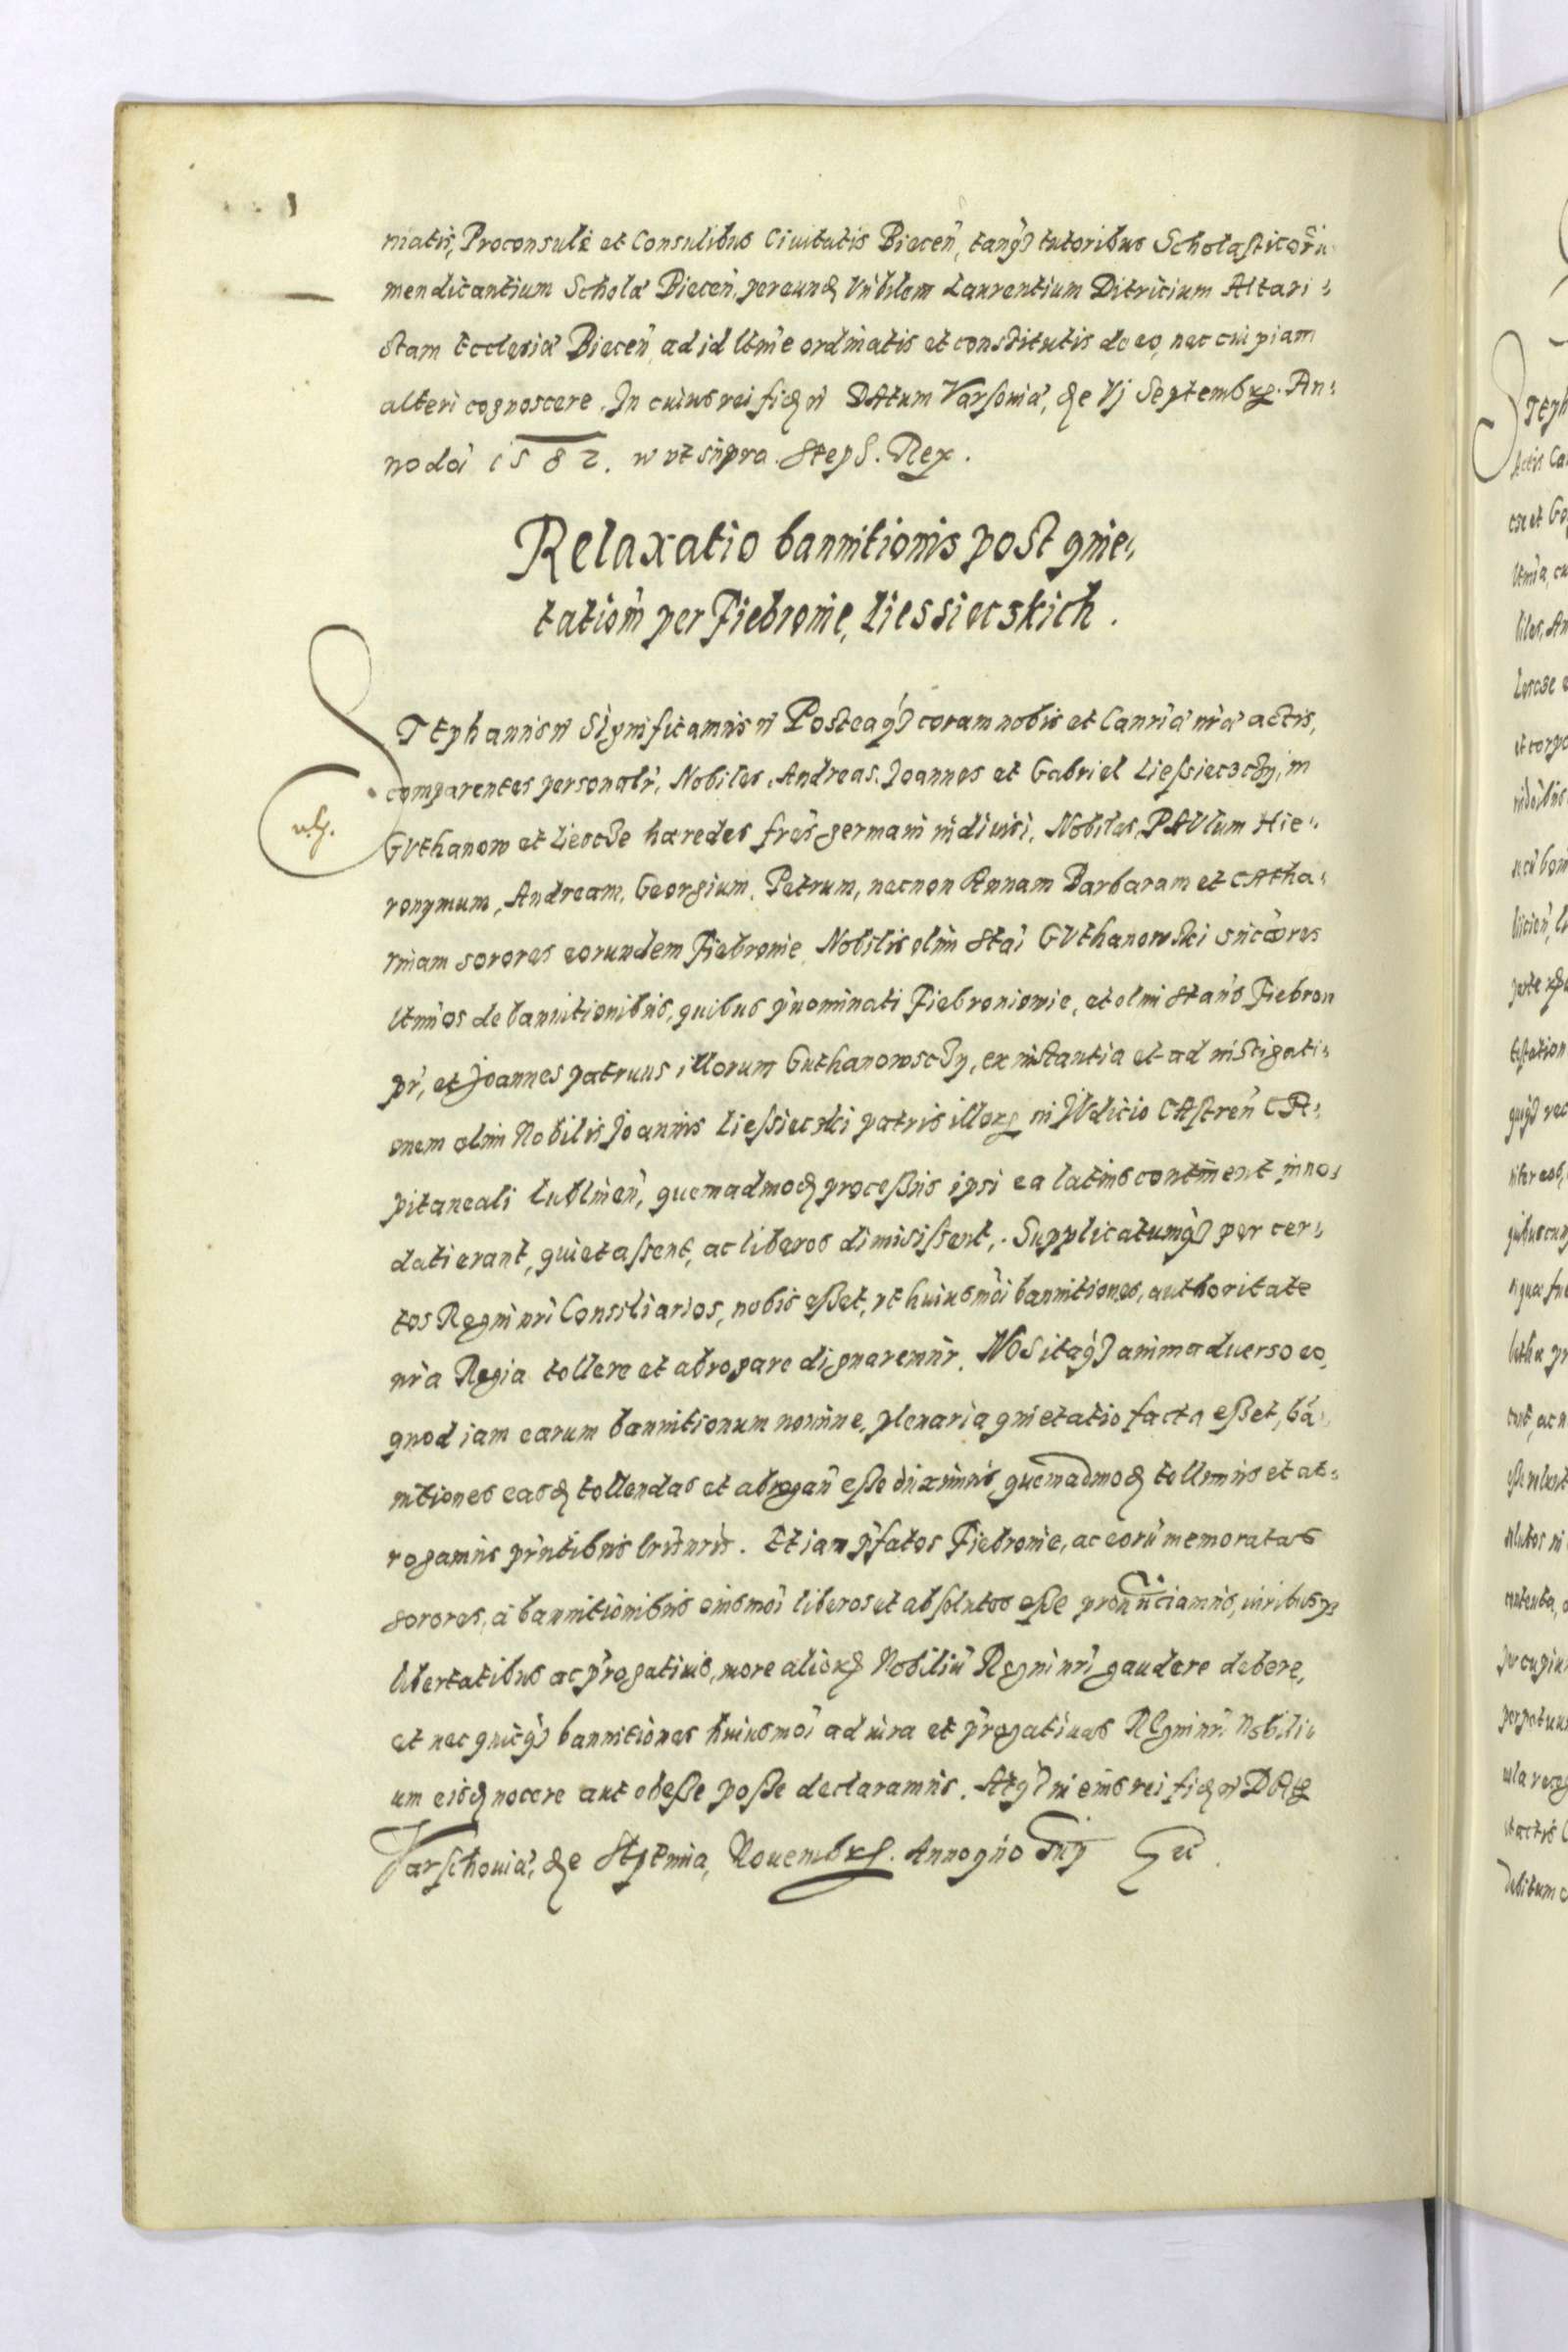 niatis, Proconsuli et Consulibus Ciuitatis Biecen̄, tanq̃ tutoribus Scholasticorū
mendicantium Scholæ Biecen̄, per eund Vn̄bilem Laurentium Ditricium Altari:
stam Ecclesiæ Biecen̄ ad id ltm̄e ordinatis et constitutis de eo, nec cuipiam
alteri cognoscere. In cuius rei fid n̄ DAtum Varsouiæ, die Vj Septembr. An:
no dni 1582. w vt supra. Steph. Rex.
Relaxatio bannitionis post quie:
tatiom̄ per Fiebronie, Liessiecskich.
STEphanus n̄ Significamus n̄ Posteaq̃ coram nobis et Canria nr̄a actis,
comparentes personalr̄, Nobiles, Andreas, Joannes et Gabriel Liessiecscÿ, in
GVthanow et Liescze hæredes frēs germani indiuisi, Nobiles, PAVlum Hie:
ronymum, Andream, Georgium, Petrum, necnon Annam Barbaram et CAtha:
rinam sorores eorundem Fiebronie, Nobilis olim Stai GVthanowski succōres
ltm̄os de bannitionibus, quibus p̄nominati Fiebroniowie, et olim Stan̄s Fiebron
pr̄, et Joannes patruus illorum Guthanowscÿ, ex instantia et ad instigati:
onem olim Nobilis Joannis Liessiecski patris illor in JVdicio CAstren̄ CA:
pitaneali Lublinen̄, quemadmod processus ipsi ea latius continent inno:
dati erant, quietassent, ac liberos dimisissent, Supplicatumq̃ per cer:
tos Regni nr̄i Consiliarios, nobis esset, vt huiusmōi bannitiones, authoritate
nr̄a Regia tollere et abrogare dignaremur. NOS itaq̃ animaduerso eo,
quod iam earum bannitionum nomine, plenaria quietatio facta esset, bā:
nitiones easd tollendas et abrogan̄ esse duximus, quemadmod tollimus et ab:
rogamus pr̄ntibus lr̄is nr̄is. Et iam p̄fatos Fiebronie, ac eorū memoratas
sorores, à bannitionibus eiusmoi liberos et absolutos esse pronūciamus, iuribusq
libertatibus ac p̄rogatiuis, more alior Nobiliū Regni nr̄i gaudere debere,
et nec quicq̃ bannitiones huiusmoi ad iura et p̄rogatiuas REgni nr̄i Nobili
um eisd nocere aut obesse posse declaramus. Atq̃ in eius rei fid n̄ DAt
Varschouiæ, die Septima, Nouembr. Anno quo